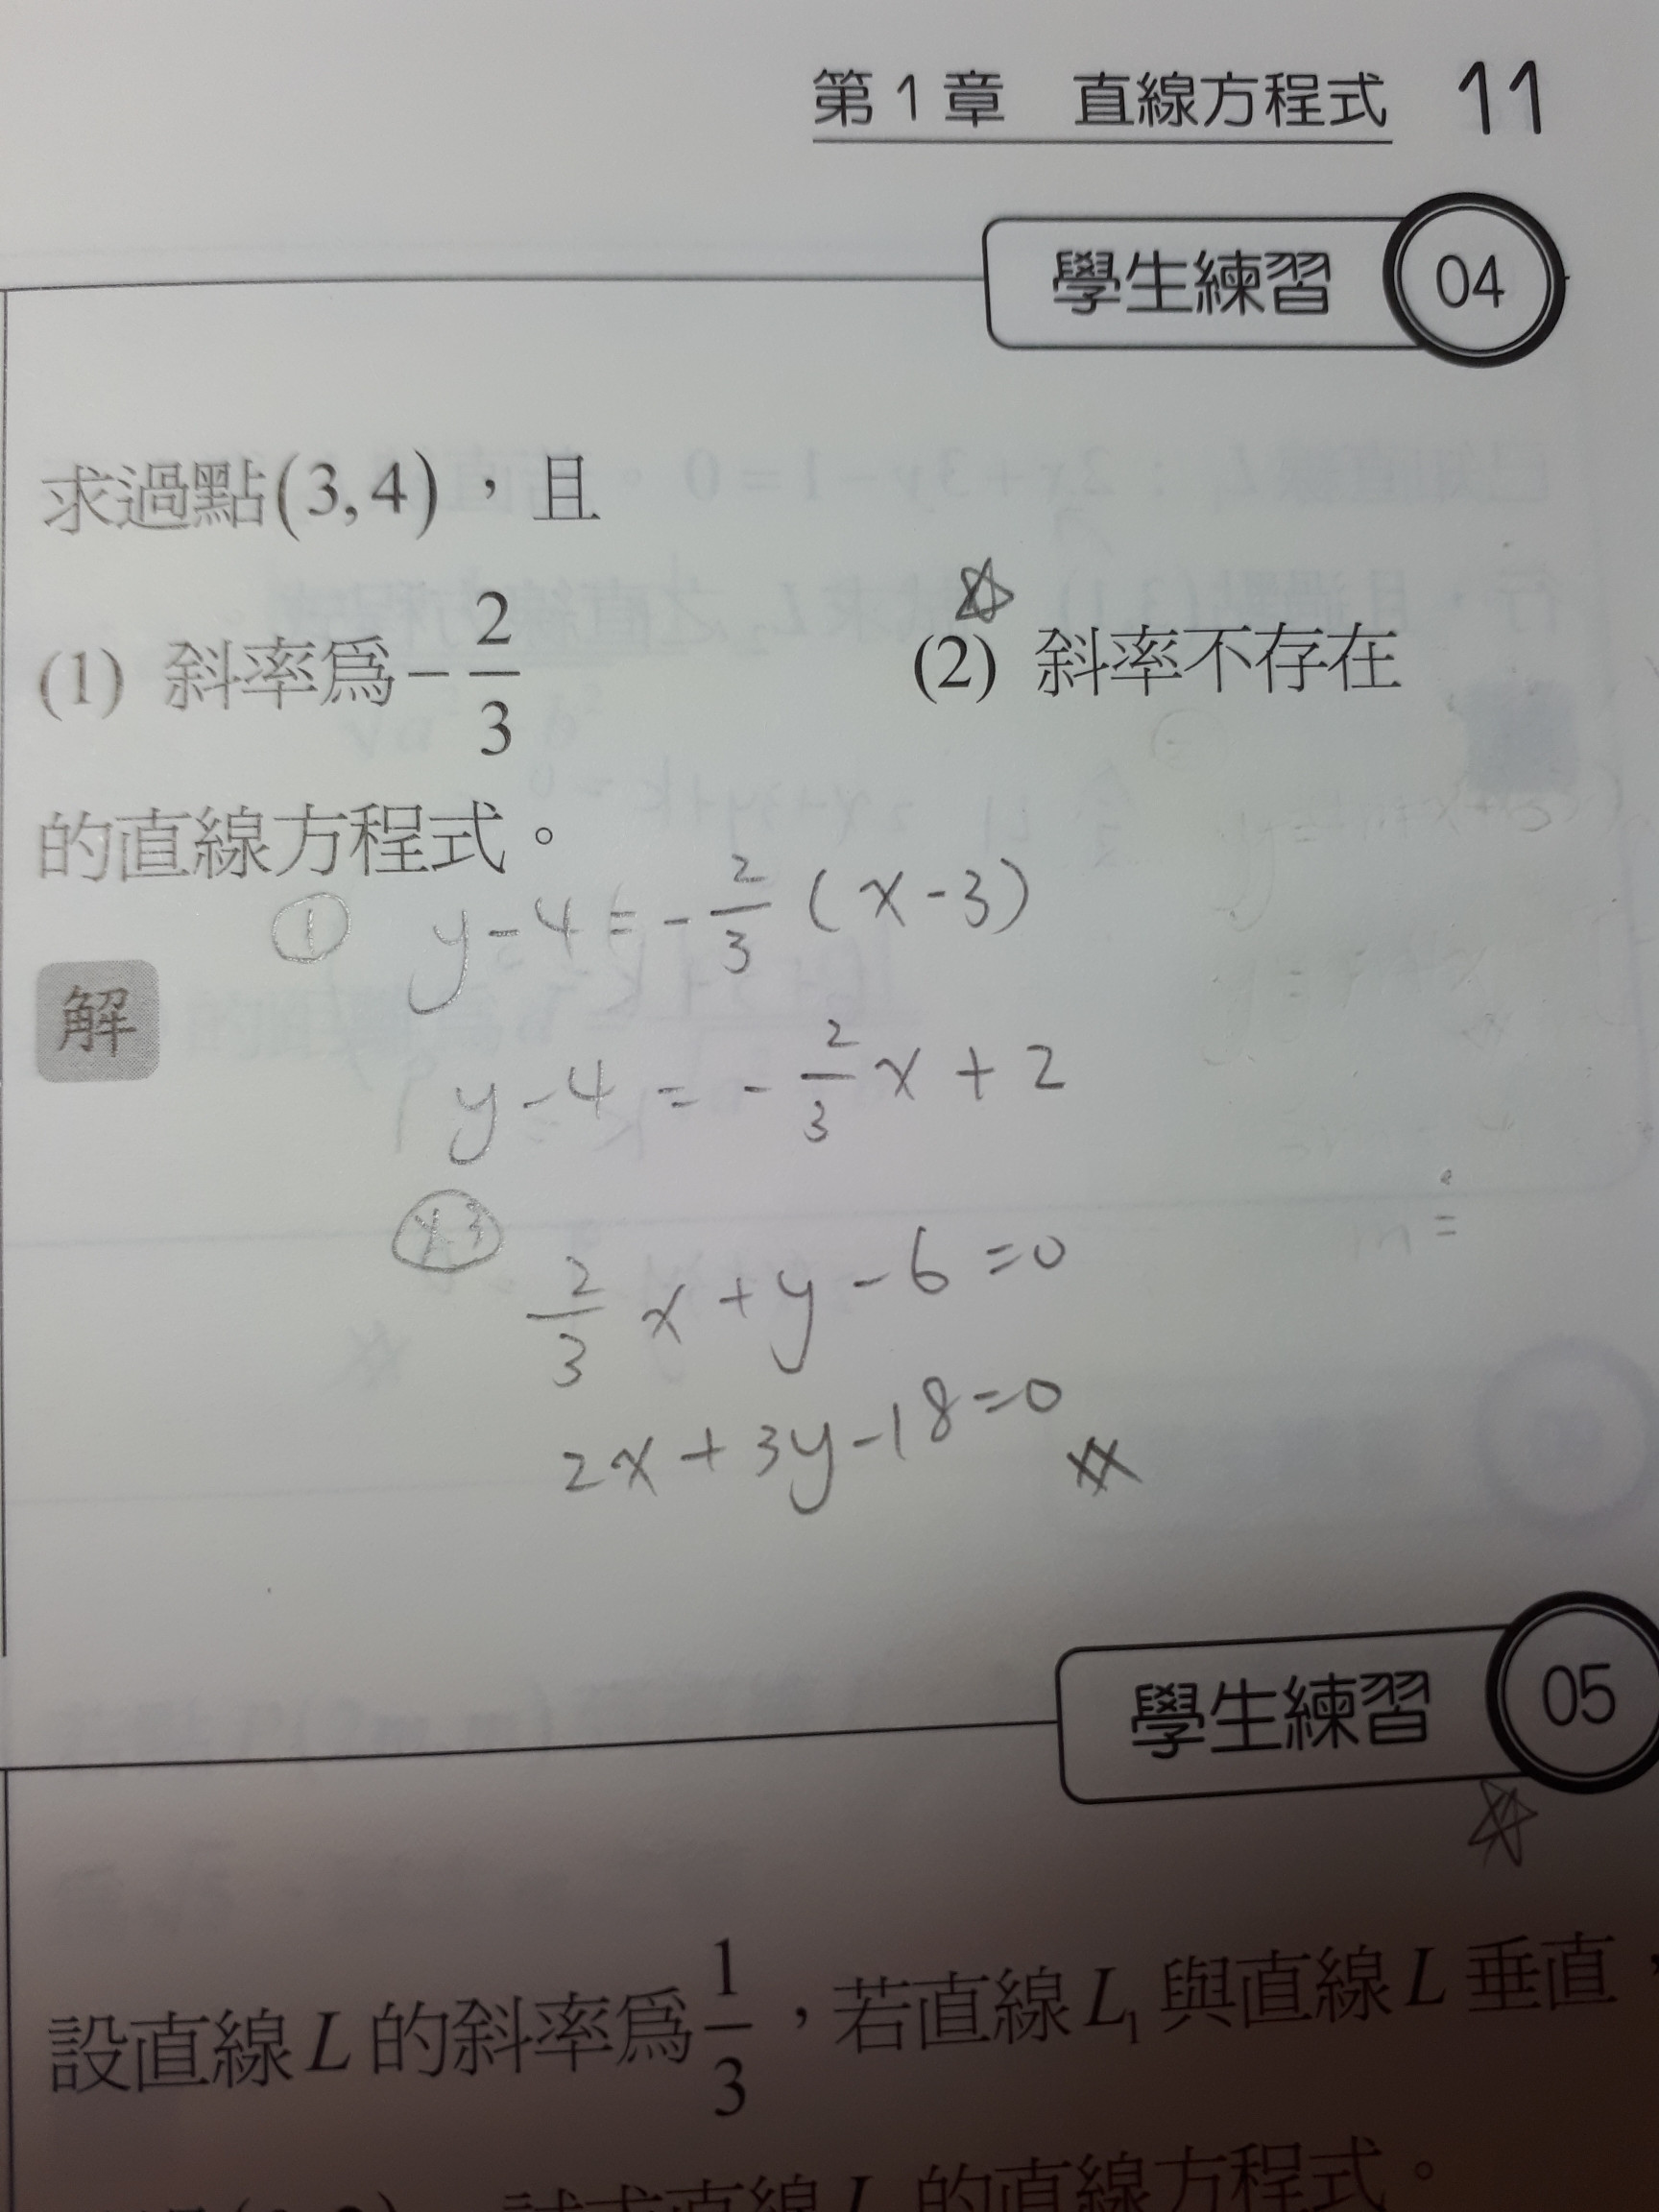 第1章 直線方程式 11
學生練習 04
求過點(3,4),且
(1) 斜率為-2/3 (2) 斜率不存在
的直線方程式。
① y-4=-2/3(x-3)
解
y-4=-2/3x+2
×3
2/3x+y-6=0
m=
2x+3y-18=0
學生練習 05
設直線L的斜率為1/3,若直線L₁與直線L垂直,
試求直線L 的直線方程式。